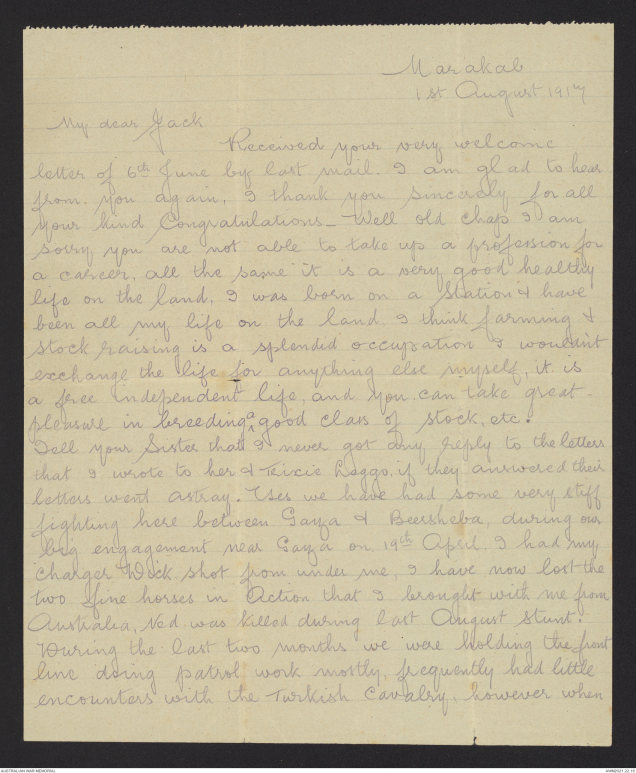 Marakab
1st August 1917
My dear Jack
Received your very welcome
letter of 6th June by last mail. I am glad to hear
from you again, I thank you sincerely for all
your kind Congratulations - Well old chap I am
sorry you are not able to take up a profession for
a career, all the same it is a very good healthy
life on the land, I was born on a Station & have
been all my life on the land, I think farming &
stock raising is a splendid occupation I wouldn't
exchange the life for anything else myself, it is
a free independent life, and you can take great
pleasure in breeding a good class of stock, etc.
Tell your Sister that I never got any reply to the letters
that I wrote to her & Leggo, if they answered their
letters went astray. Yes we have had some very stiff
fighting here between Gaza & Beersheba, during our
big engagement near Gaza on 19th April, I had my
charger shot from under me, I have now lost the
two fine horses in Action that I brought with me from
Australia, Ned was killed during last August stunt.
During the last two months we were holding the front
line doing patrol work mostly, frequently had little
encounters with the Turkish Cavalry, however when
AUSTRALIAN WAR MEMORIAL